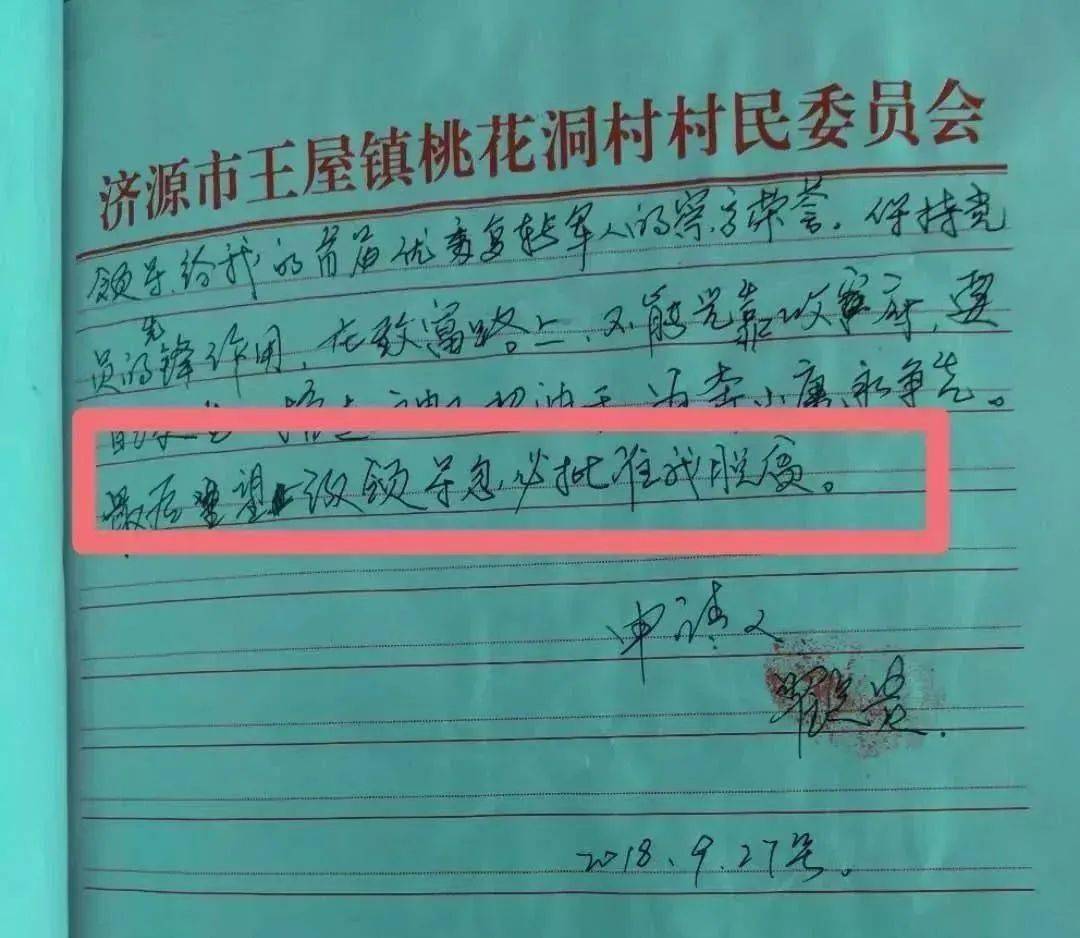 济源市王屋镇桃花洞村村民委员会
领导给我的首届优秀复转军人的崇高荣誉。保持党
员的先锋作用,在致富路上,不能光靠政府,要
奔小康永争先。
最后望上级领导急必批准我脱贫。
申请人
2018.9.27号。